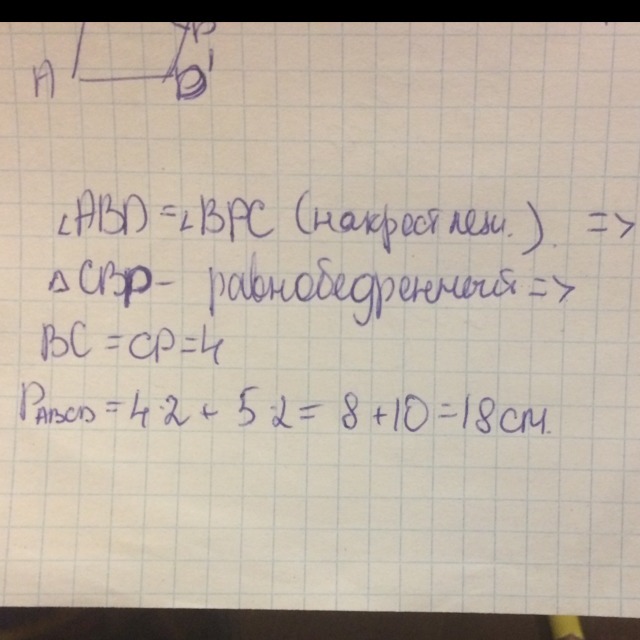 P
A D 1
∠ABD = ∠BPC (накрест леж.) =>
△CBP - равнобедренный =>
BC = CP = 4
PABCD = 4·2 + 5·2 = 8 + 10 = 18 см.